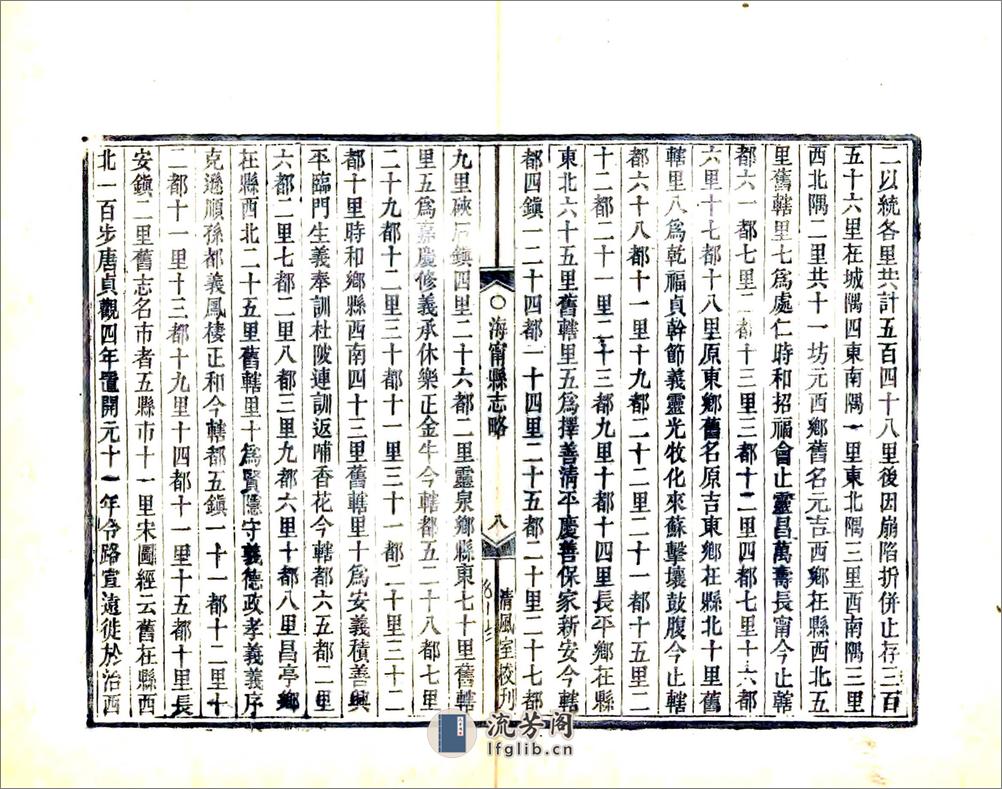 二以統各里共計五百四十八里後因崩陷折併止存三百
五十六里在城隅四東南隅一里東北隅三里西南隅二里
西北隅二里共十一坊元西鄉舊名元吉西鄉在縣西北五
里舊轄里七為處仁時和招福會止靈昌萬壽長甯今止轄
都六一都七里二都十三里三都十二里四都七里十六都
六里十七都十八里原東鄉舊名原吉東鄉在縣北十里舊
轄里八為乾福貞幹節義靈光牧化來蘇擊壤鼓腹今止轄
都六十八都十一里十九都二十二里二十一都十五里二
十二都二十一里二十三都九里十都十四里長平鄉在縣
東北六十五里舊轄里五為擇善清平慶善保家新安今轄
都四鎮一二十四都一十四里二十五都二十里二十七都
海甯縣志略
八
清風室校刊
九里硤石鎮四里二十六都二里靈泉鄉縣東七十里舊轄
里五為嘉慶修義承休樂正金牛今轄都五二十八都七里
二十九都十二里三十都十一里三十一都二十里三十二
都十里時和鄉縣西南四十三里舊轄里十為安義積善興
平臨門生義奉訓杜陂連訓返哺香花今轄都六五都二里
六都二里七都二里八都三里九都六里十都八里昌亭鄉
在縣西北二十五里舊轄里十為賢隱守義德政孝義義序
克遜順孫都義鳳棲正和今轄都五鎮一十一都十二里十
二都十一里十三都十九里十四都十一里十五都十里長
安鎮二里舊志名市者五縣市十一里宋圖經云舊在縣西
北一百步唐貞觀四年置開元十一年令路宣遠徙於治西
流芳阁
lfglib.cn